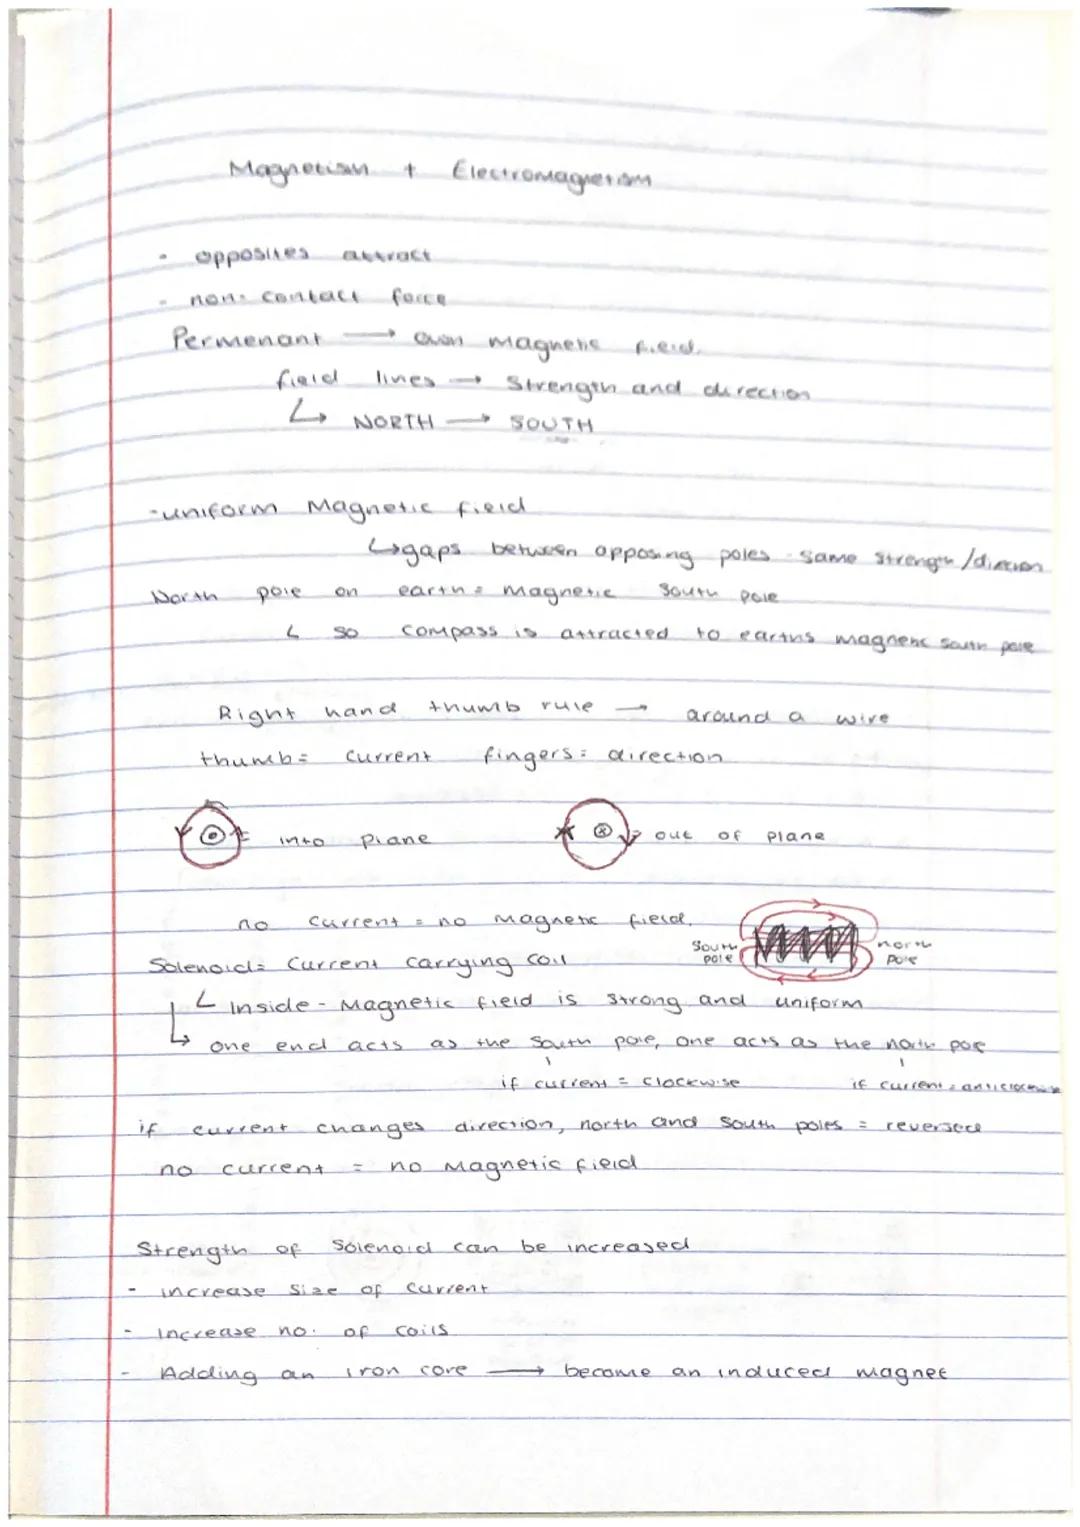 Magnetism + Electromagnetism
- opposites attract
- non-contact force
Permenant → own magnetic field.
field lines → Strength and direction
↳ NORTH → SOUTH
-uniform Magnetic field
↳gaps between opposing poles - same strength/direction
North pole on earth = magnetic South pole
↳ so compass is attracted to earths magnetic south pole
Right hand thumb rule → around a wire
thumb = current fingers = direction
= into plane = out of plane
no current = no magnetic field.
South pole north pole
Solenoid = Current carrying coil
↳ Inside - Magnetic field is strong and uniform
↳ one end acts as the South pole, one acts as the north pole
if current = clockwise if current = anticlockwise
if current changes direction, north and south poles = reversed
no current = no Magnetic field
Strength of Solenoid can be increased
- increase size of current
- Increase no. of coils
- Adding an iron core → become an induced magnet